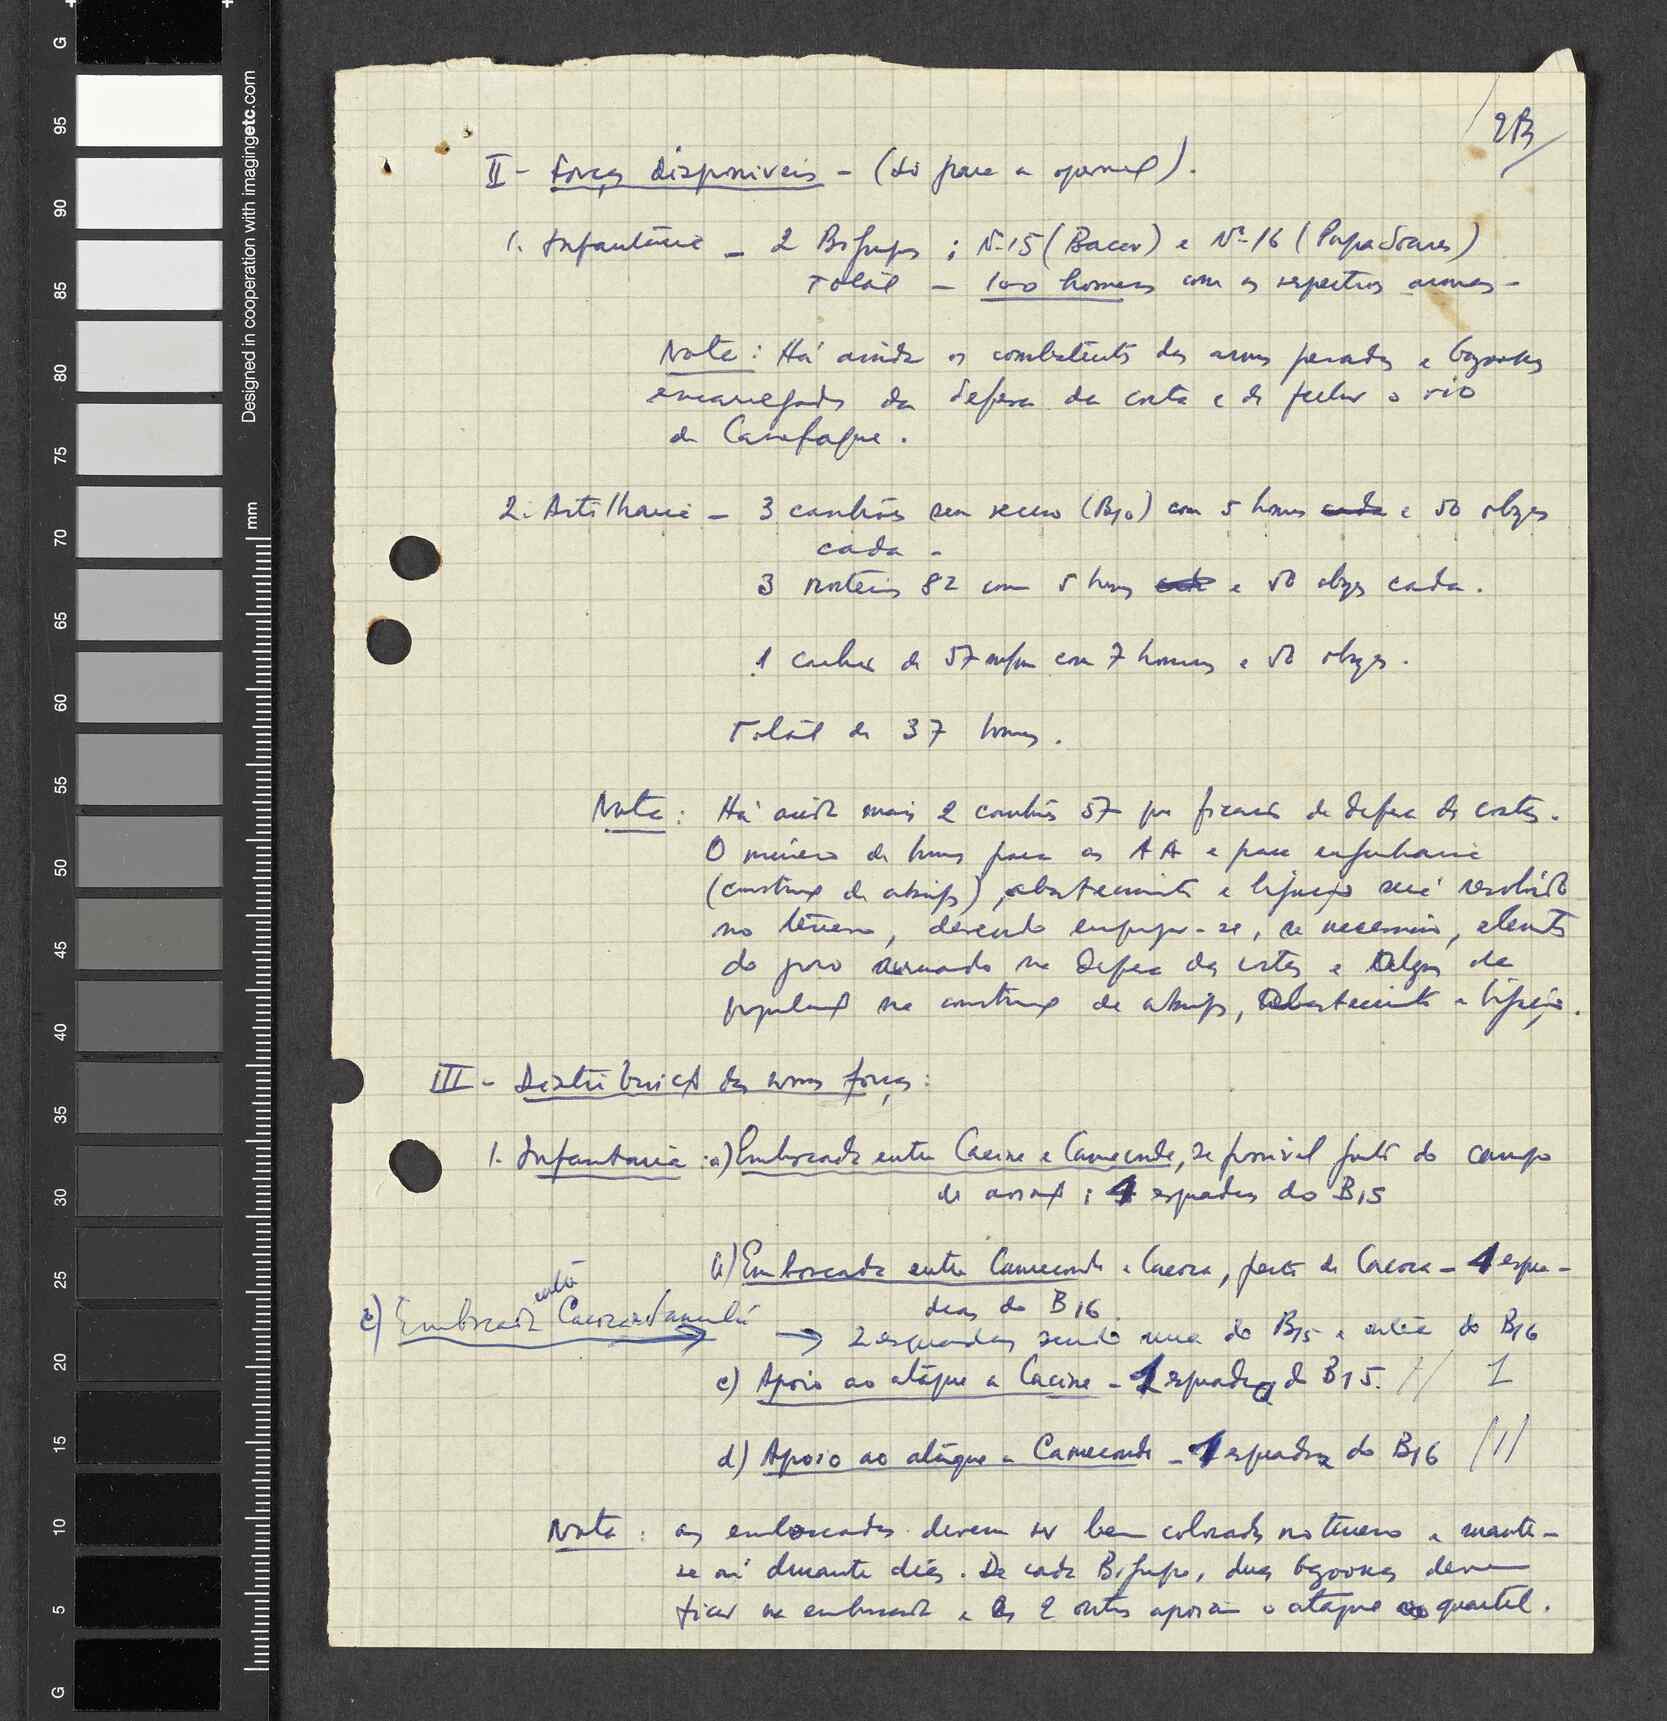 2B
II - Forças disponíveis - (só para a operação).
1. Infantaria - 2 Bigrupos ; Nº 15 (Bacar) e Nº 16 (Papa Soares)
Total - 100 homens com as respectivas armas -
Nota : Há ainda os combatentes das armas pesadas e bazookas
encarregados da defesa da costa e de fechar o rio
de Canafaque.
2. Artilharia - 3 canhões sem recuo (B10) com 5 homens cada e 50 obuzes
cada -
3 morteiros 82 com 5 homens cada e 50 obuzes cada.
1 canhão de 57 m/m com 7 homens e 50 obuzes.
Total de 37 homens.
Nota : Há ainda mais 2 canhões 57 que ficarão de defesa da costa.
O número de homens para as AA e para engenharia
(construção de abrigos), abastecimento e ligação será resolvido
no terreno, devendo empregar-se, se necessário, elementos
do povo armado na defesa das costas e alguns da
população na construção de abrigos, abastecimento e ligação.
III - Distribuição das nossas forças :
1. Infantaria : a) Emboscada entre Cacine e Cameconde, se possível junto do campo
de aviação ; 4 esquadras do B15
b) Emboscada entre Cameconde e Cacoca, perto de Cacoca - 4 esqua-
dras do B16
e) Emboscada entre Cacoca e Sanculá → 2 esquadras sendo uma do B15 e outra do B16
c) Apoio ao ataque a Cacine - 1 esquadra do B15. // 1
d) Apoio ao ataque a Cameconde - 1 esquadra do B16 /1/
Nota : as emboscadas devem ser bem colocadas no terreno e manter-
se aí durante dias. De cada Bigrupo, duas bazookas devem
ficar na emboscada e as 2 outras apoiam o ataque ao quartel.
Designed in cooperation with imagingetc.com
mm
G
95
90
85
80
75
70
65
60
55
50
45
40
35
30
25
20
15
10
5
G